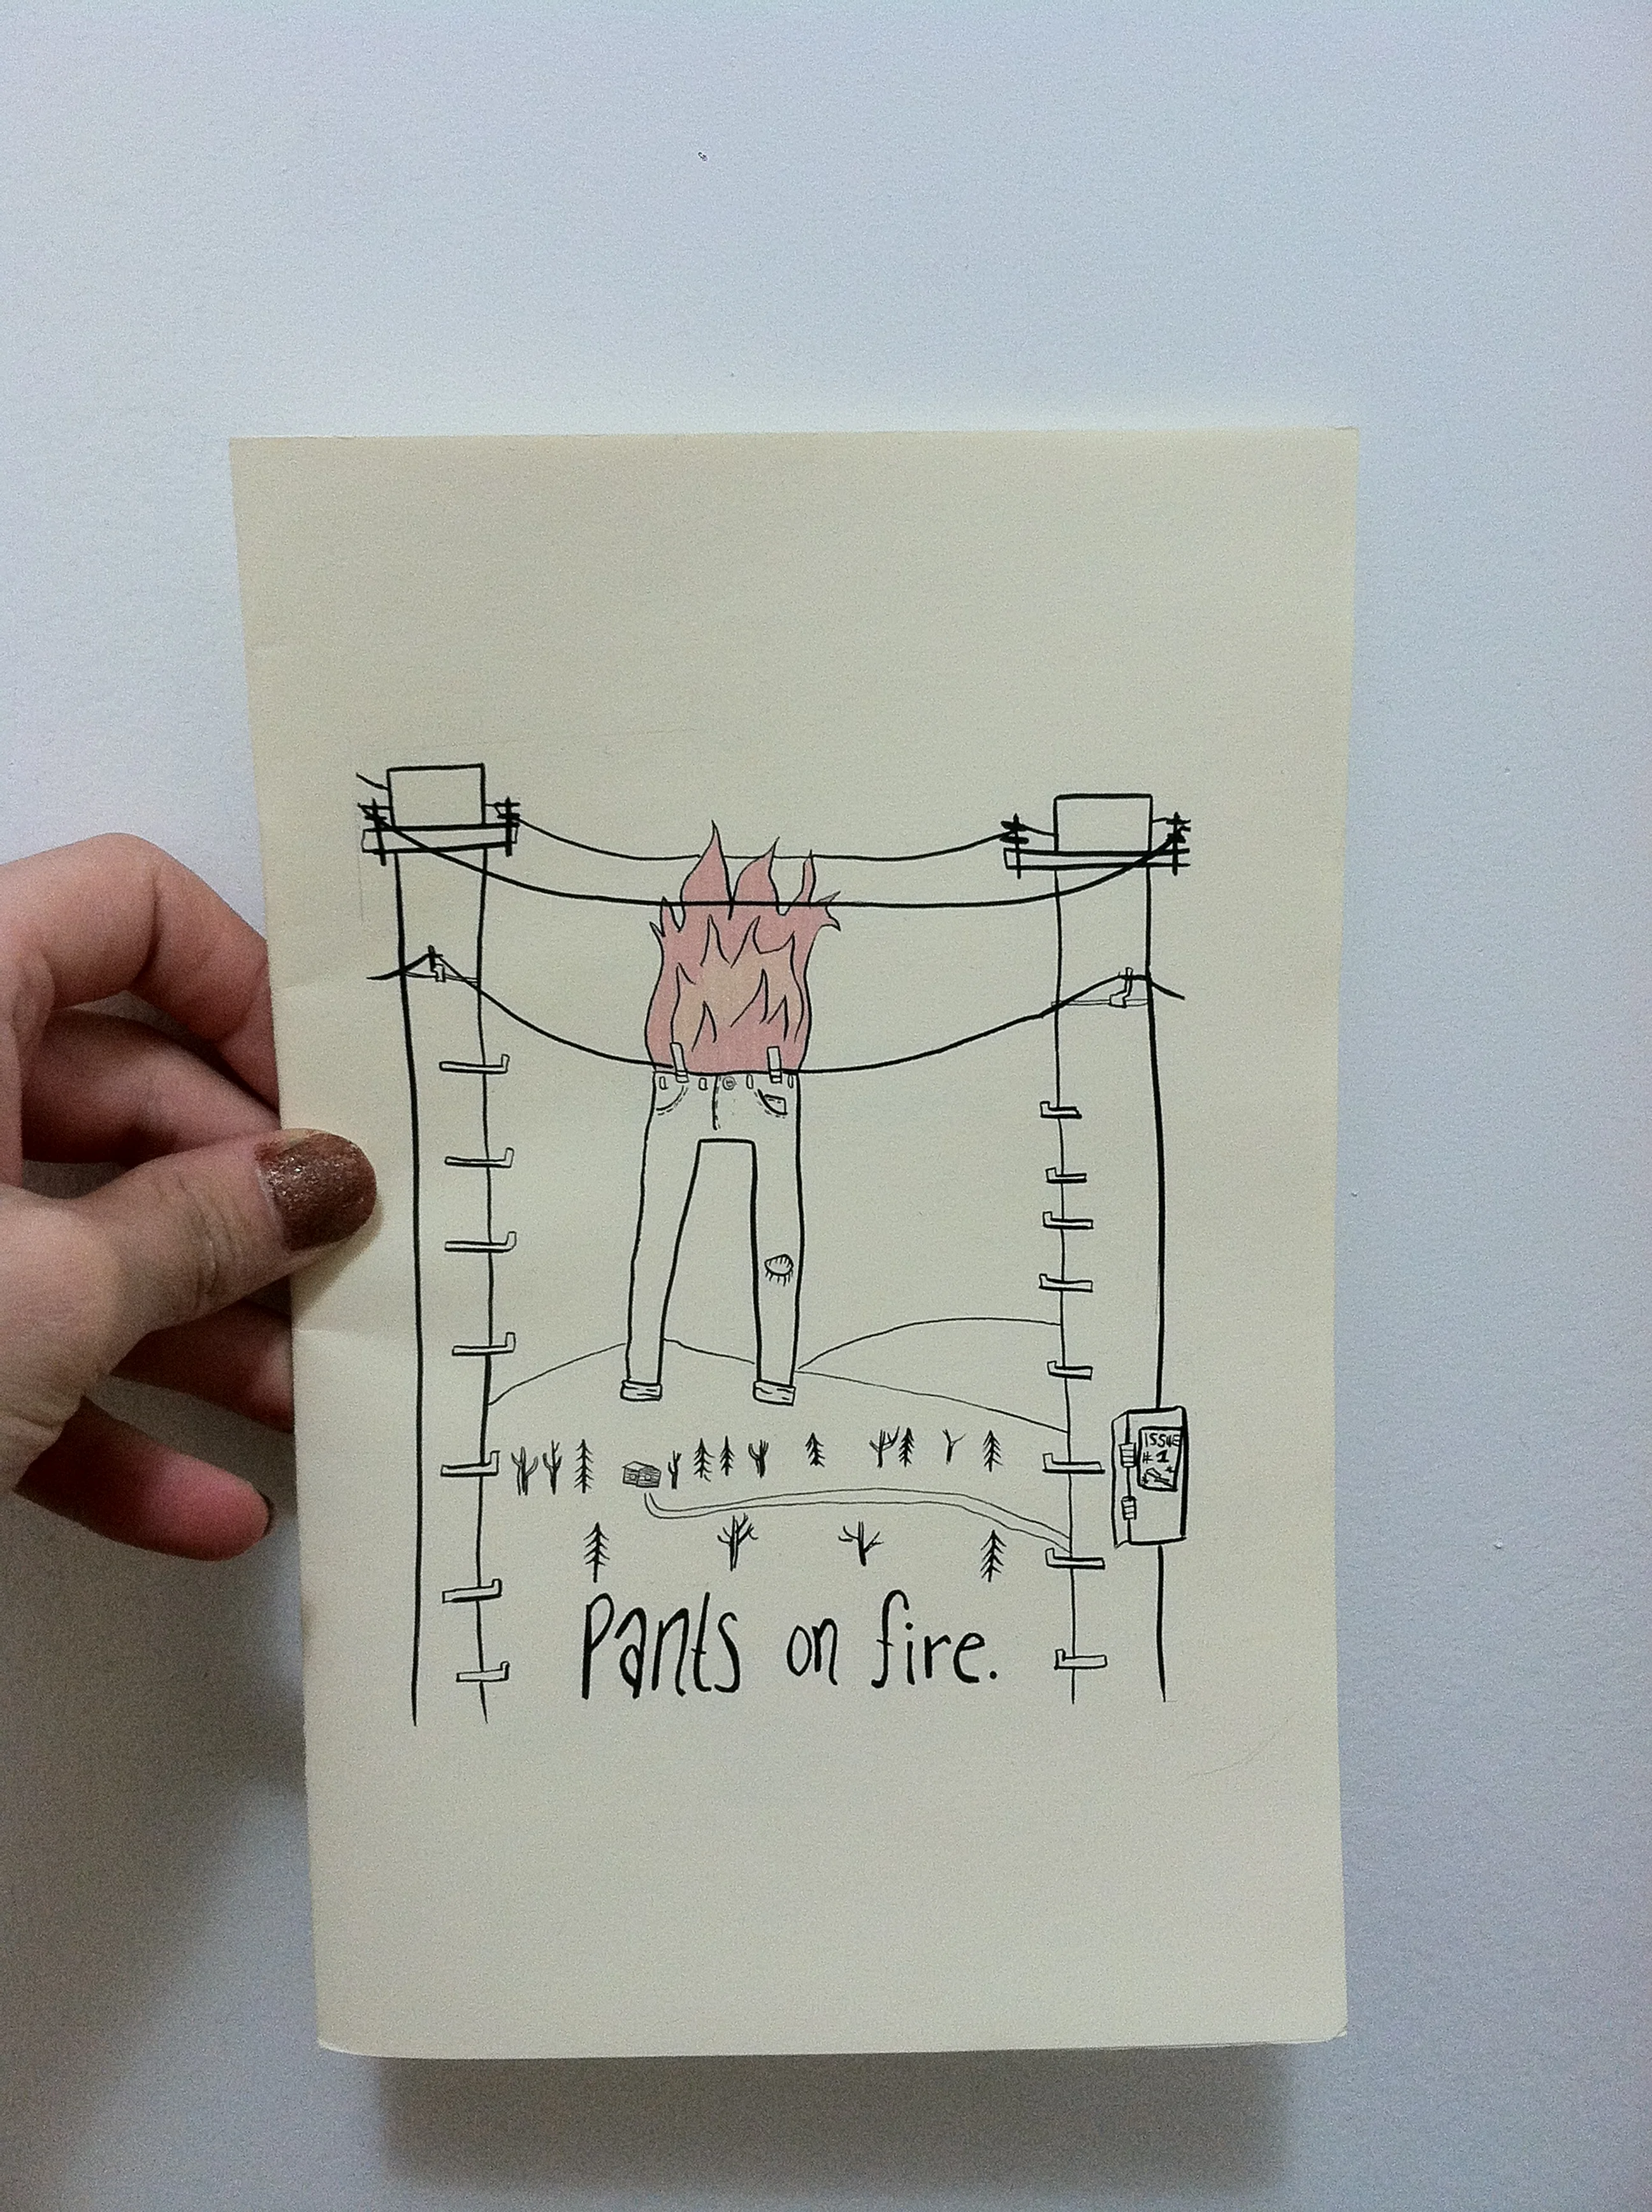 ISSUE
#1
Pants on fire.